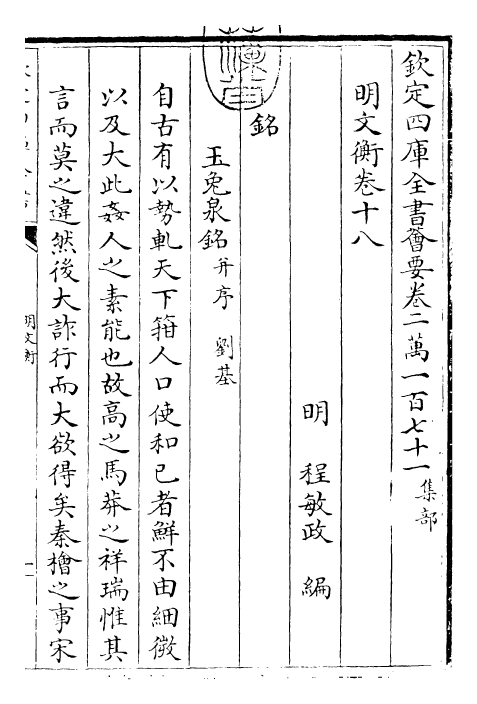 欽定四庫全書薈要卷二萬一百七十一集部
明文衡卷十八
明 程敏政 編
銘
玉兔泉銘并序 劉基
自古有以勢軋天下箝人口使和已者鮮不由細微
以及大此姦人之素能也故高之馬莽之祥瑞惟其
言而莫之違然後大詐行而大欲得矣秦檜之事宋
明文衡